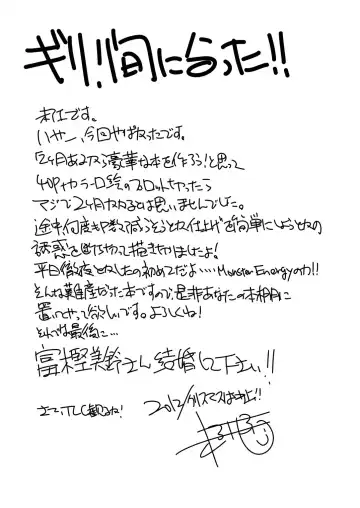 ギリ!間に合った!!
朱江です。
いやー、今回やばかったです。
「2ヶ月あるから豪華な本を作ろう!」と思って
40Pやカラー口絵のプロットをやったら
マジで2ヶ月かかるとは思いませんでした。
途中何度もP数を減らそうとか仕上げを簡単にしようとかの
誘惑を断ち切って描ききりましたよ!
平日徹夜とかしたの初めてだよ……Monster Energyの力!!
そんな難産だった本ですので是非あなたの本棚に
置いてやって欲しいです。よろしくね!
そんでは最後に…
富樫美鈴さん結婚して下さい!!
2012/クリスマスは中止!!